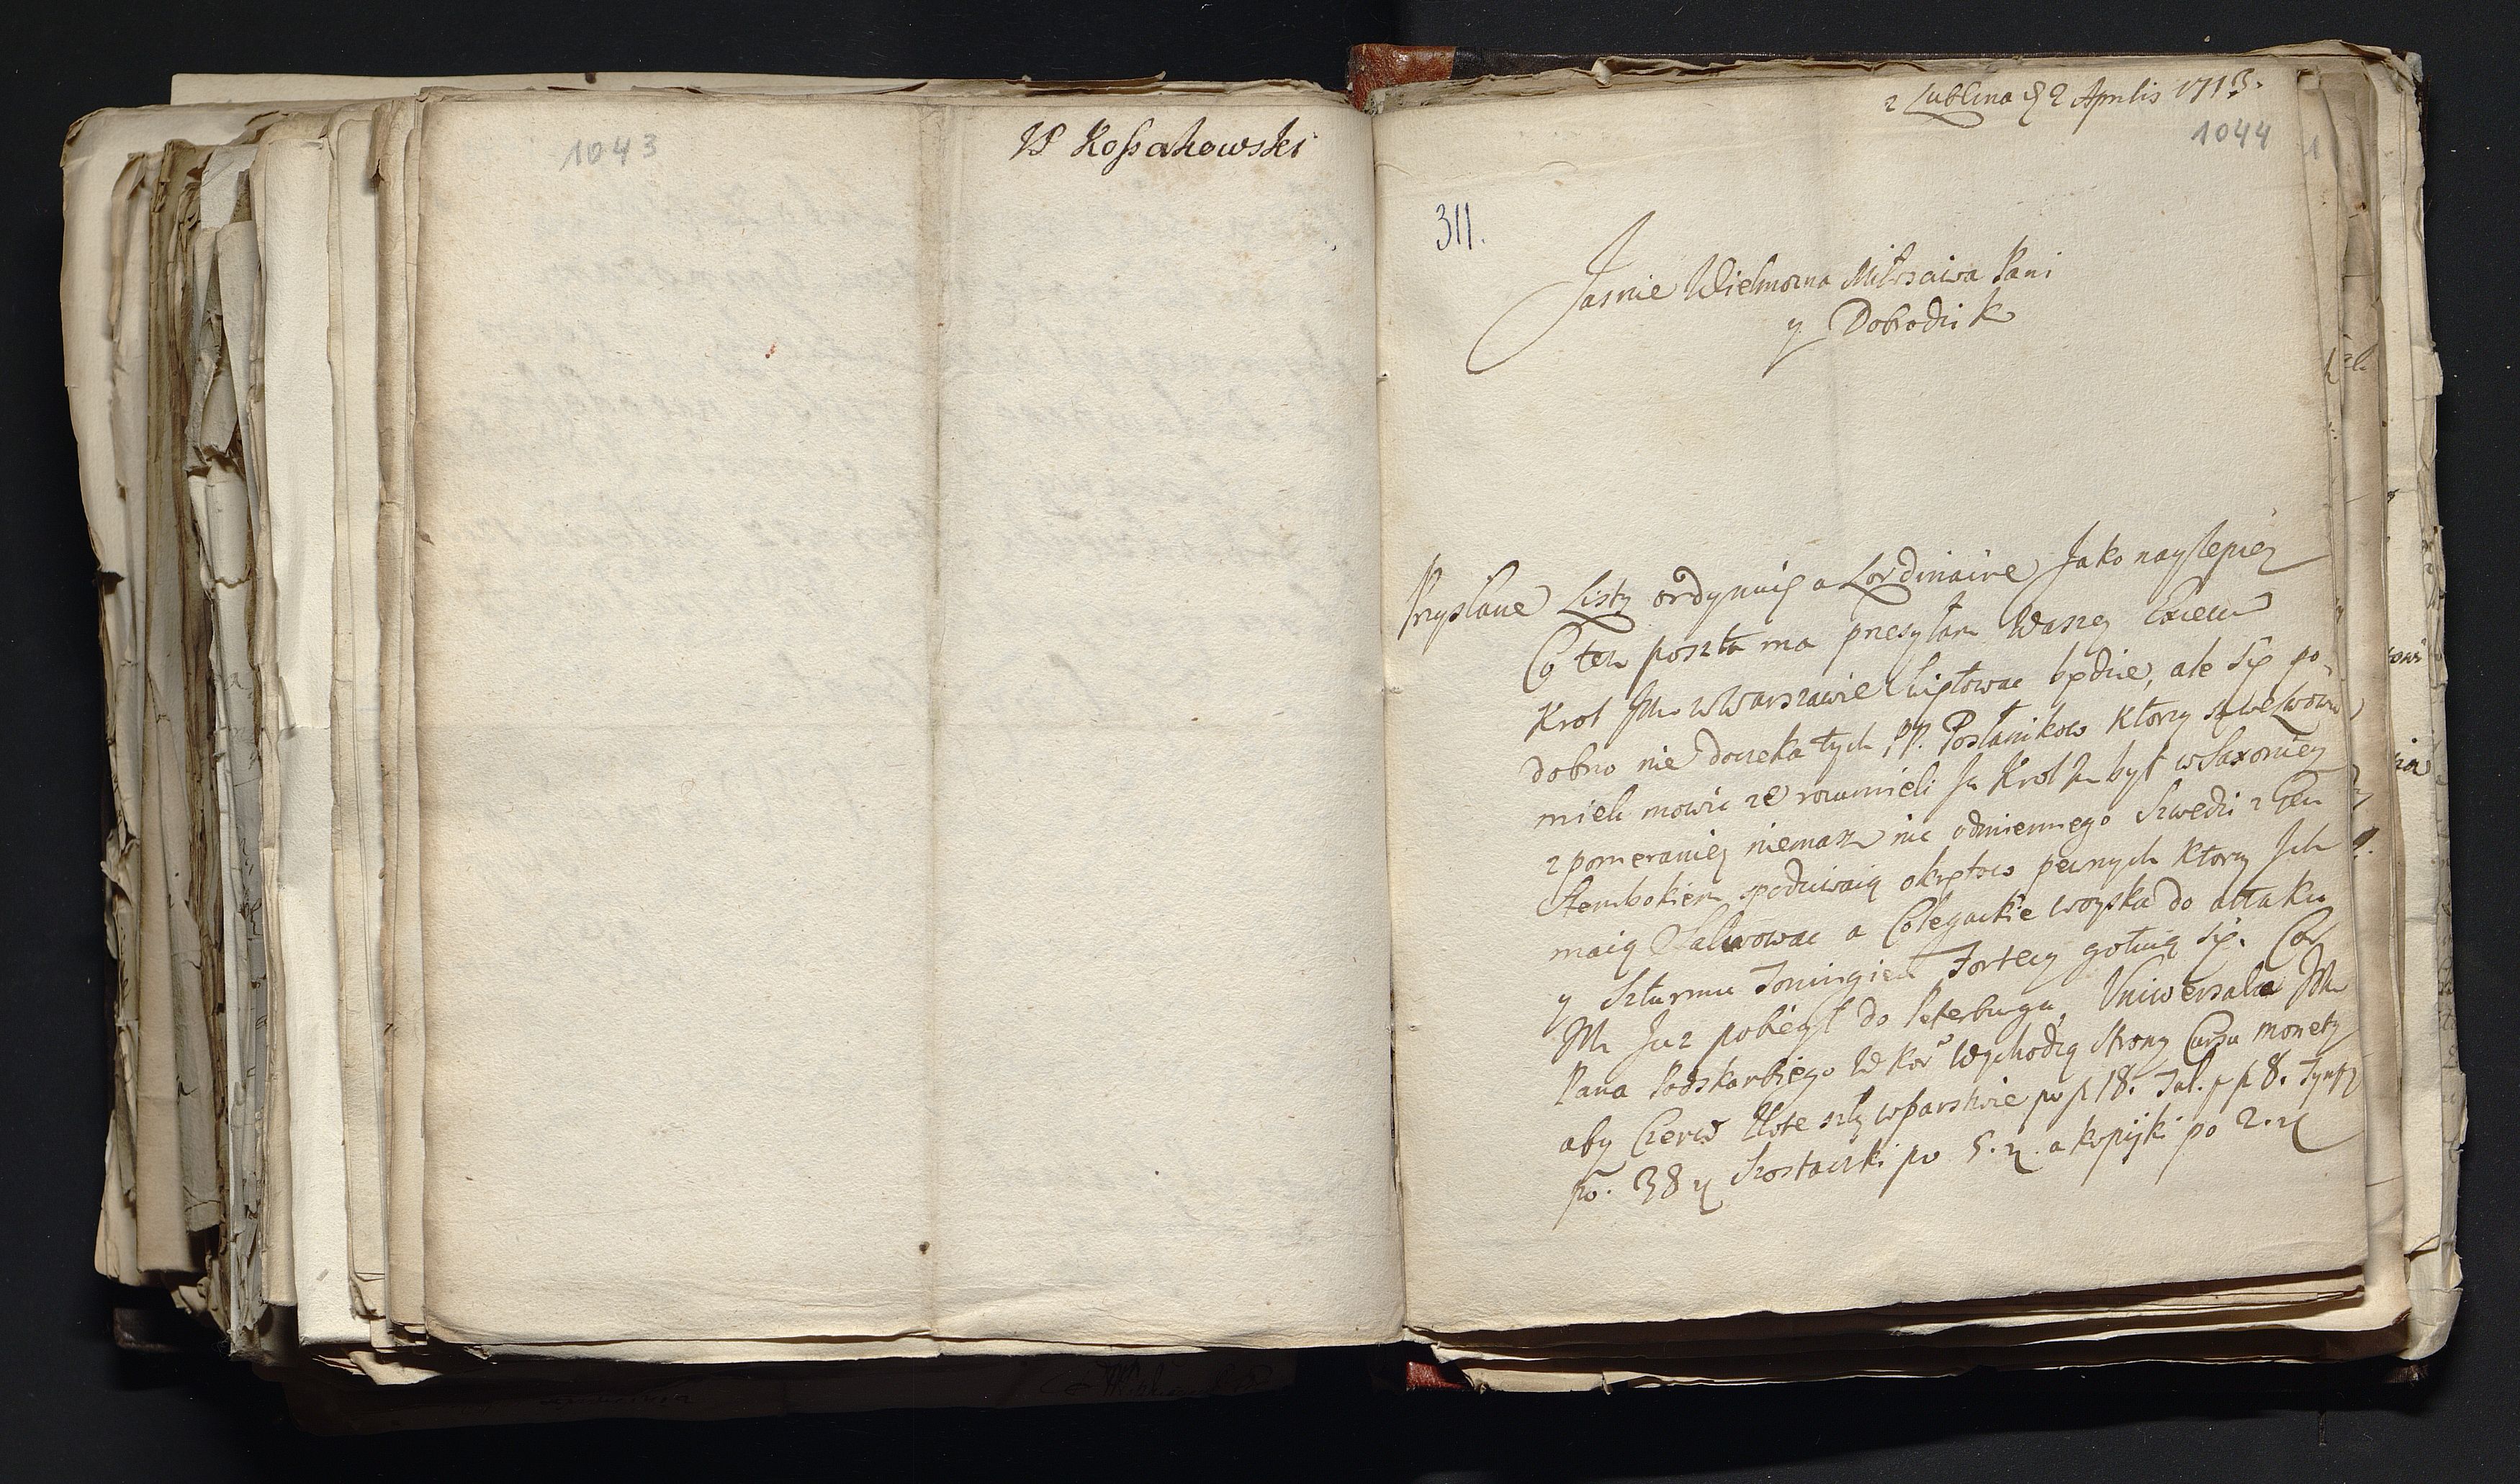 1043
JP Kossakowski
z Lublina d 2 Aprilis 1713.
1044
311.
Jasnie Wielmozna Mśćiwa Pani
y Dobrodzik
Przyslane Listy ordynuię a Lordinaire Jako naylepiey
Co ten poszta ma przesyłam Waszey
Krol Jm w Warszawie Swiętowac będzie, ale się po
dobno nie doczeka tych PP. Posłanikow Ktorzy są we Lwowie
mieli mowic ze rozumieli Ja Krol Jm był w Saxoniey
z pomeraniey niemasz nic odmiennego Szwedzi z Gen
Stembokiem spodziwaią okrętow pewnych Ktory Ich
maią Salwowac a Colegackie woyska do attaku
y Szturmu Toningien Fortecy gotuią się. Car
Jm Juz pobiegł do Peterburgu, Uniwersala Jm
Pana Podskarbiego W Kor Wychodzą strony Cursu monety
aby Czerw Złote szły w Panstwie po f 18. Tal. p f 8. Tynfy
po. 38 y Szostaczki po 5. a kopijki po 2.